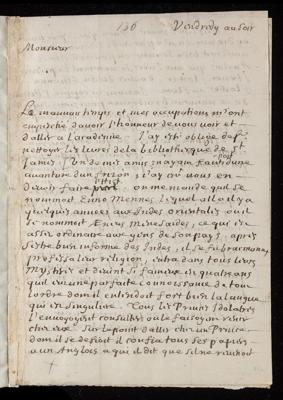 136
Vendredy au soir
Monsieur
Le mauvais temps et mes occupations m'ont
empeché d'avoir l'honneur de vous voir et
d'aller a l'academie. J'ay esté obligé de
nettoyer les livres de la bibliotheque de St
James. Un de mes amis m'ayant
avanture d'un frizon, j'ay cru vous en
devoir faire part. on me mande qu'il se
nommoit Enno Mennes, lequel alla il y a
quelques annees aux Indes orientales ou il
se nommoit ce qui est
assez ordinaire aux gens de son pays, apres
s'estre bien informé des Indes, il se fit
professa leur religion, entra dans tous leurs
mysteres et devint si fameux en quatre ans
qu'il eut une parfaite connoissance de tout
l'ordre dont il entendoit fort bien la langue
qui est singuliere. Tous les Princes Idolatres
l'envoyoient consulter ou le faisoyent venir
chez eux. Sur le point d'aller chez un Prince
dont il se defioit il confia tous ses papiers
a un Anglois a qui il dit que s'il ne revenoit